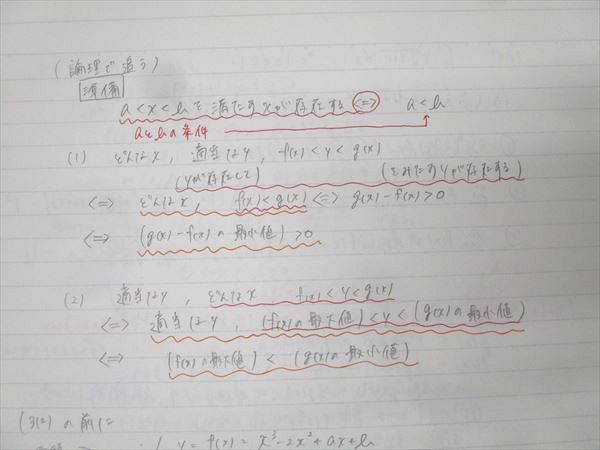 (論理で追う)
準備
a < x < b を満たすxが存在する ⇔ a < b
aとbの条件
(1) どんなx, 適当なy, f(x) < y < g(x)
(yが存在して) (をみたすyが存在する)
⇔ どんなx, f(x) < g(x) ⇔ g(x) - f(x) > 0
⇔ (g(x) - f(x) の最小値) > 0
(2) 適当なy, どんなx f(x) < y < g(x)
⇔ 適当なy, (f(x)の最大値) < y < (g(x)の最小値)
⇔ (f(x)の最大値) < (g(x)の最小値)
(3)(2) の前に
y = f(x) = x³ - 2x² + ax + b